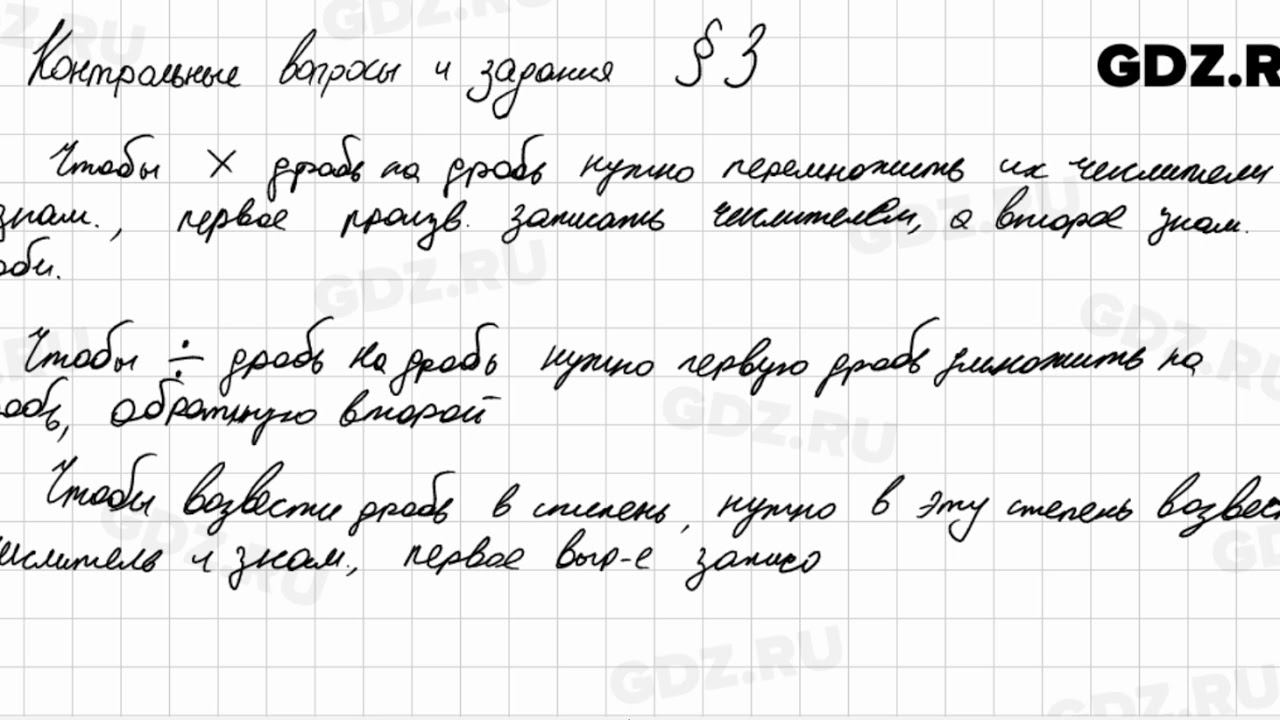 Контрольные вопросы и задания § 3
GDZ.R
Чтобы × дробь на дробь нужно перемножить их числители
знам., первое произв. записать числителем, а второе знам.
оби.
Чтобы ÷ дробь на дробь нужно первую дробь умножить на
робь, обратную второй
Чтобы возвести дробь в степень, нужно в эту степень возвес
числитель и знам., первое выр-е записо
GDZ.RU
GDZ.RU
GDZ.RU
GDZ.RU
GDZ.RU
GDZ.RU
GDZ.RU
GDZ.RU